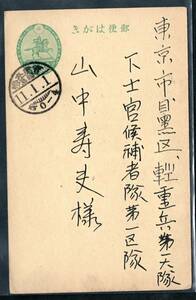 郵便はがき
東京市目黒区、輜重兵第一大隊
下士官候補者隊第一区隊
山中寿夫様
11.1.1